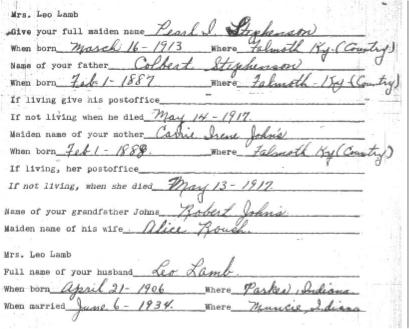 Mrs. Leo Lamb
Give your full maiden name Pearl I. Stephenson
When born March 16 - 1913 Where Falmoth Ky (Country)
Name of your father Colbert Stephenson
When born Feb 1 - 1887 Where Falmoth - Ky (Country)
If living give his postoffice
If not living when he died May 14 - 1917
Maiden name of your mother Irene John's
When born Feb 1 - 1888. Where Falmoth Ky (Country)
If living, her postoffice
If not living, when she died May 13 - 1917
Name of your grandfather Johns Robert John's
Maiden name of his wife Alice Roush.
Mrs. Leo Lamb
Full name of your husband Leo Lamb.
When born April 21 - 1906 Where Parker, Indiana
When married June 6 - 1934. Where Muncie, Indiana